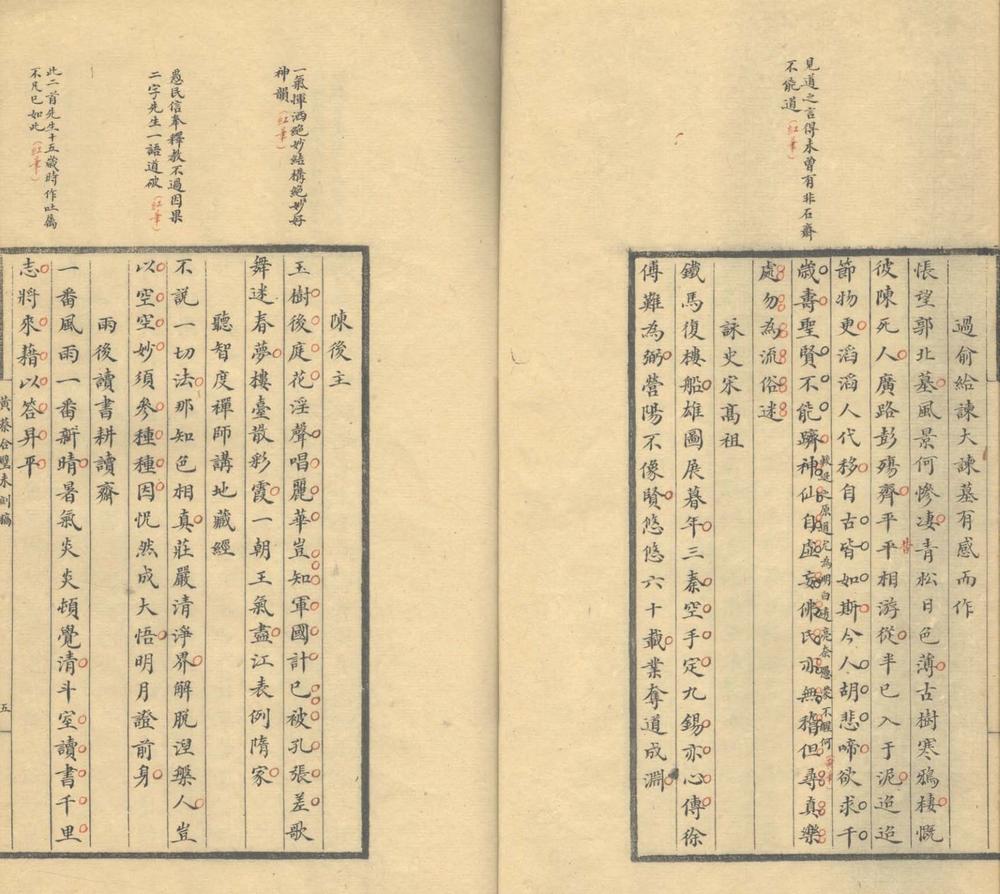 見道之言得未曾有非石齋
不能道(紅筆)
過俞給諫大諫墓有感而作
悵望郭北墓風景何慘淒青松日色薄古樹寒鴉棲慨
彼陳死人廣路彭殤齊平平相游從半已入于泥迢迢
昔
節物更滔滔人代移自古皆如斯今人胡悲啼欲求千
歲壽聖賢不能躋神仙自虛妄佛氏亦無稽但尋真樂
處勿為流俗迷
詠史宋髙祖
鐵馬復樓船雄圖展暮年三秦空手定九錫亦心傳徐
傅難為弼營陽不像賢悠悠六十載業奪道成淵
一氣揮洒絕妙結構絕妙好
神韻(紅筆)
愚民信奉釋教不過因果
二字先生一語道破(紅筆)
此二首先生十五歲時作吐屬
不凡已如此(紅筆)
陳後主
玉樹後庭花淫聲唱麗華豈知軍國計已被孔張差歌
舞迷春夢樓臺散彩霞一朝王氣盡江表例隋家
聽智度禪師講地藏經
不說一切法那知色相真莊嚴清淨界解脫涅槃人豈
以空空妙須參種種因怳然成大悟明月證前身
雨後讀書耕讀齋
一番風雨一番新晴暑氣炎炎頓覺清斗室讀書千里
志將來藉以答昇平
黃蔡合璧未刻稿
五